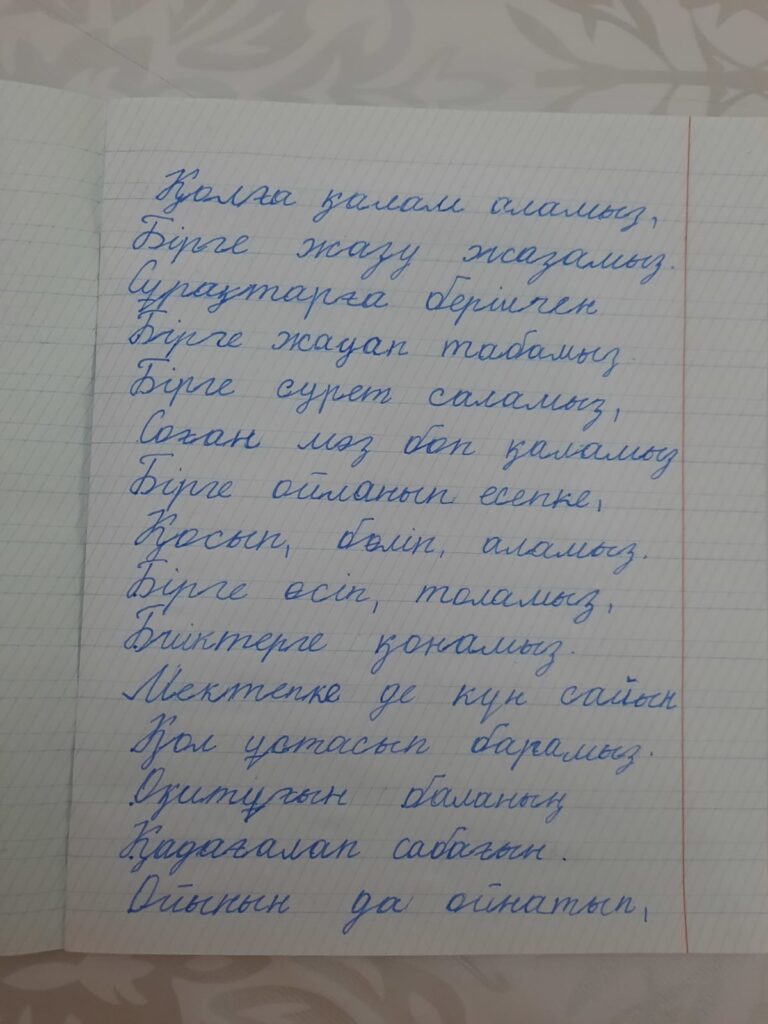 Қолға қалам аламыз,
Бірге жазу жазамыз.
Сұрақтарға берілген
Бірге жауап табамыз.
Бірге сурет саламыз,
Соған мәз боп қаламыз
Бірге ойланып есепке,
Қосып, бөліп, аламыз.
Бірге өсіп, толамыз,
Биіктерге қонамыз.
Мектепке де күн сайын
Қол ұстасып барамыз.
Оқитұғын баланың
Қадағалап сабағын.
Ойынын да ойнатып,